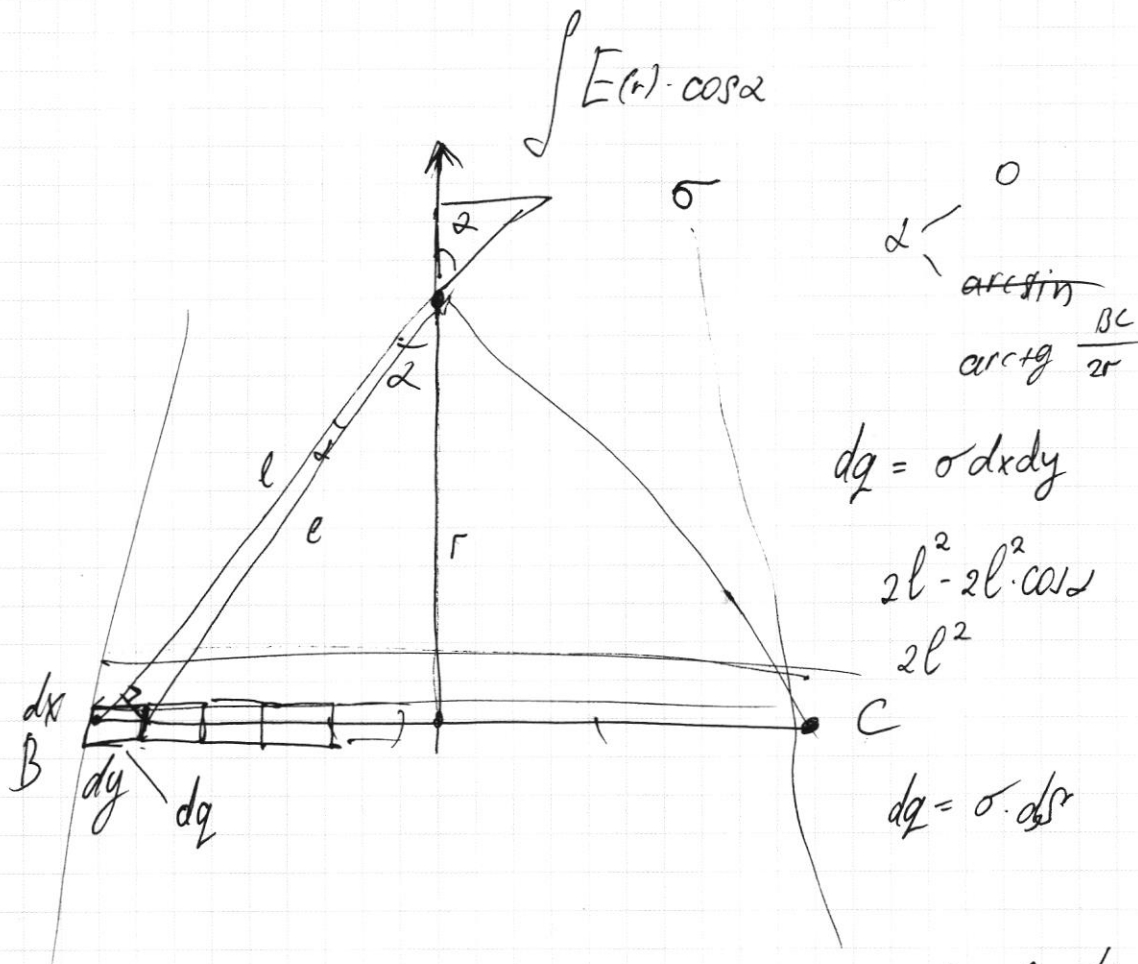 ∫ E(r) · cosα
α
σ
0
α
arcsin
arctg BC/2r
α
α
l
l
r
dq = σ dxdy
2l² - 2l² · cosα
2l²
dx
B
C
dy
dq